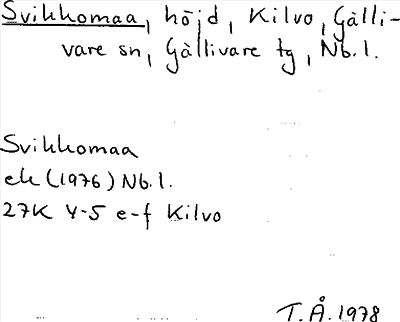 Svikkomaa, höjd, Kilvo, Gälli-
vare sn, Gällivare tg, Nb.l.
Svikkomaa
ek (1976) Nb.l.
27K 4-5 e-f Kilvo
T.Å. 1978